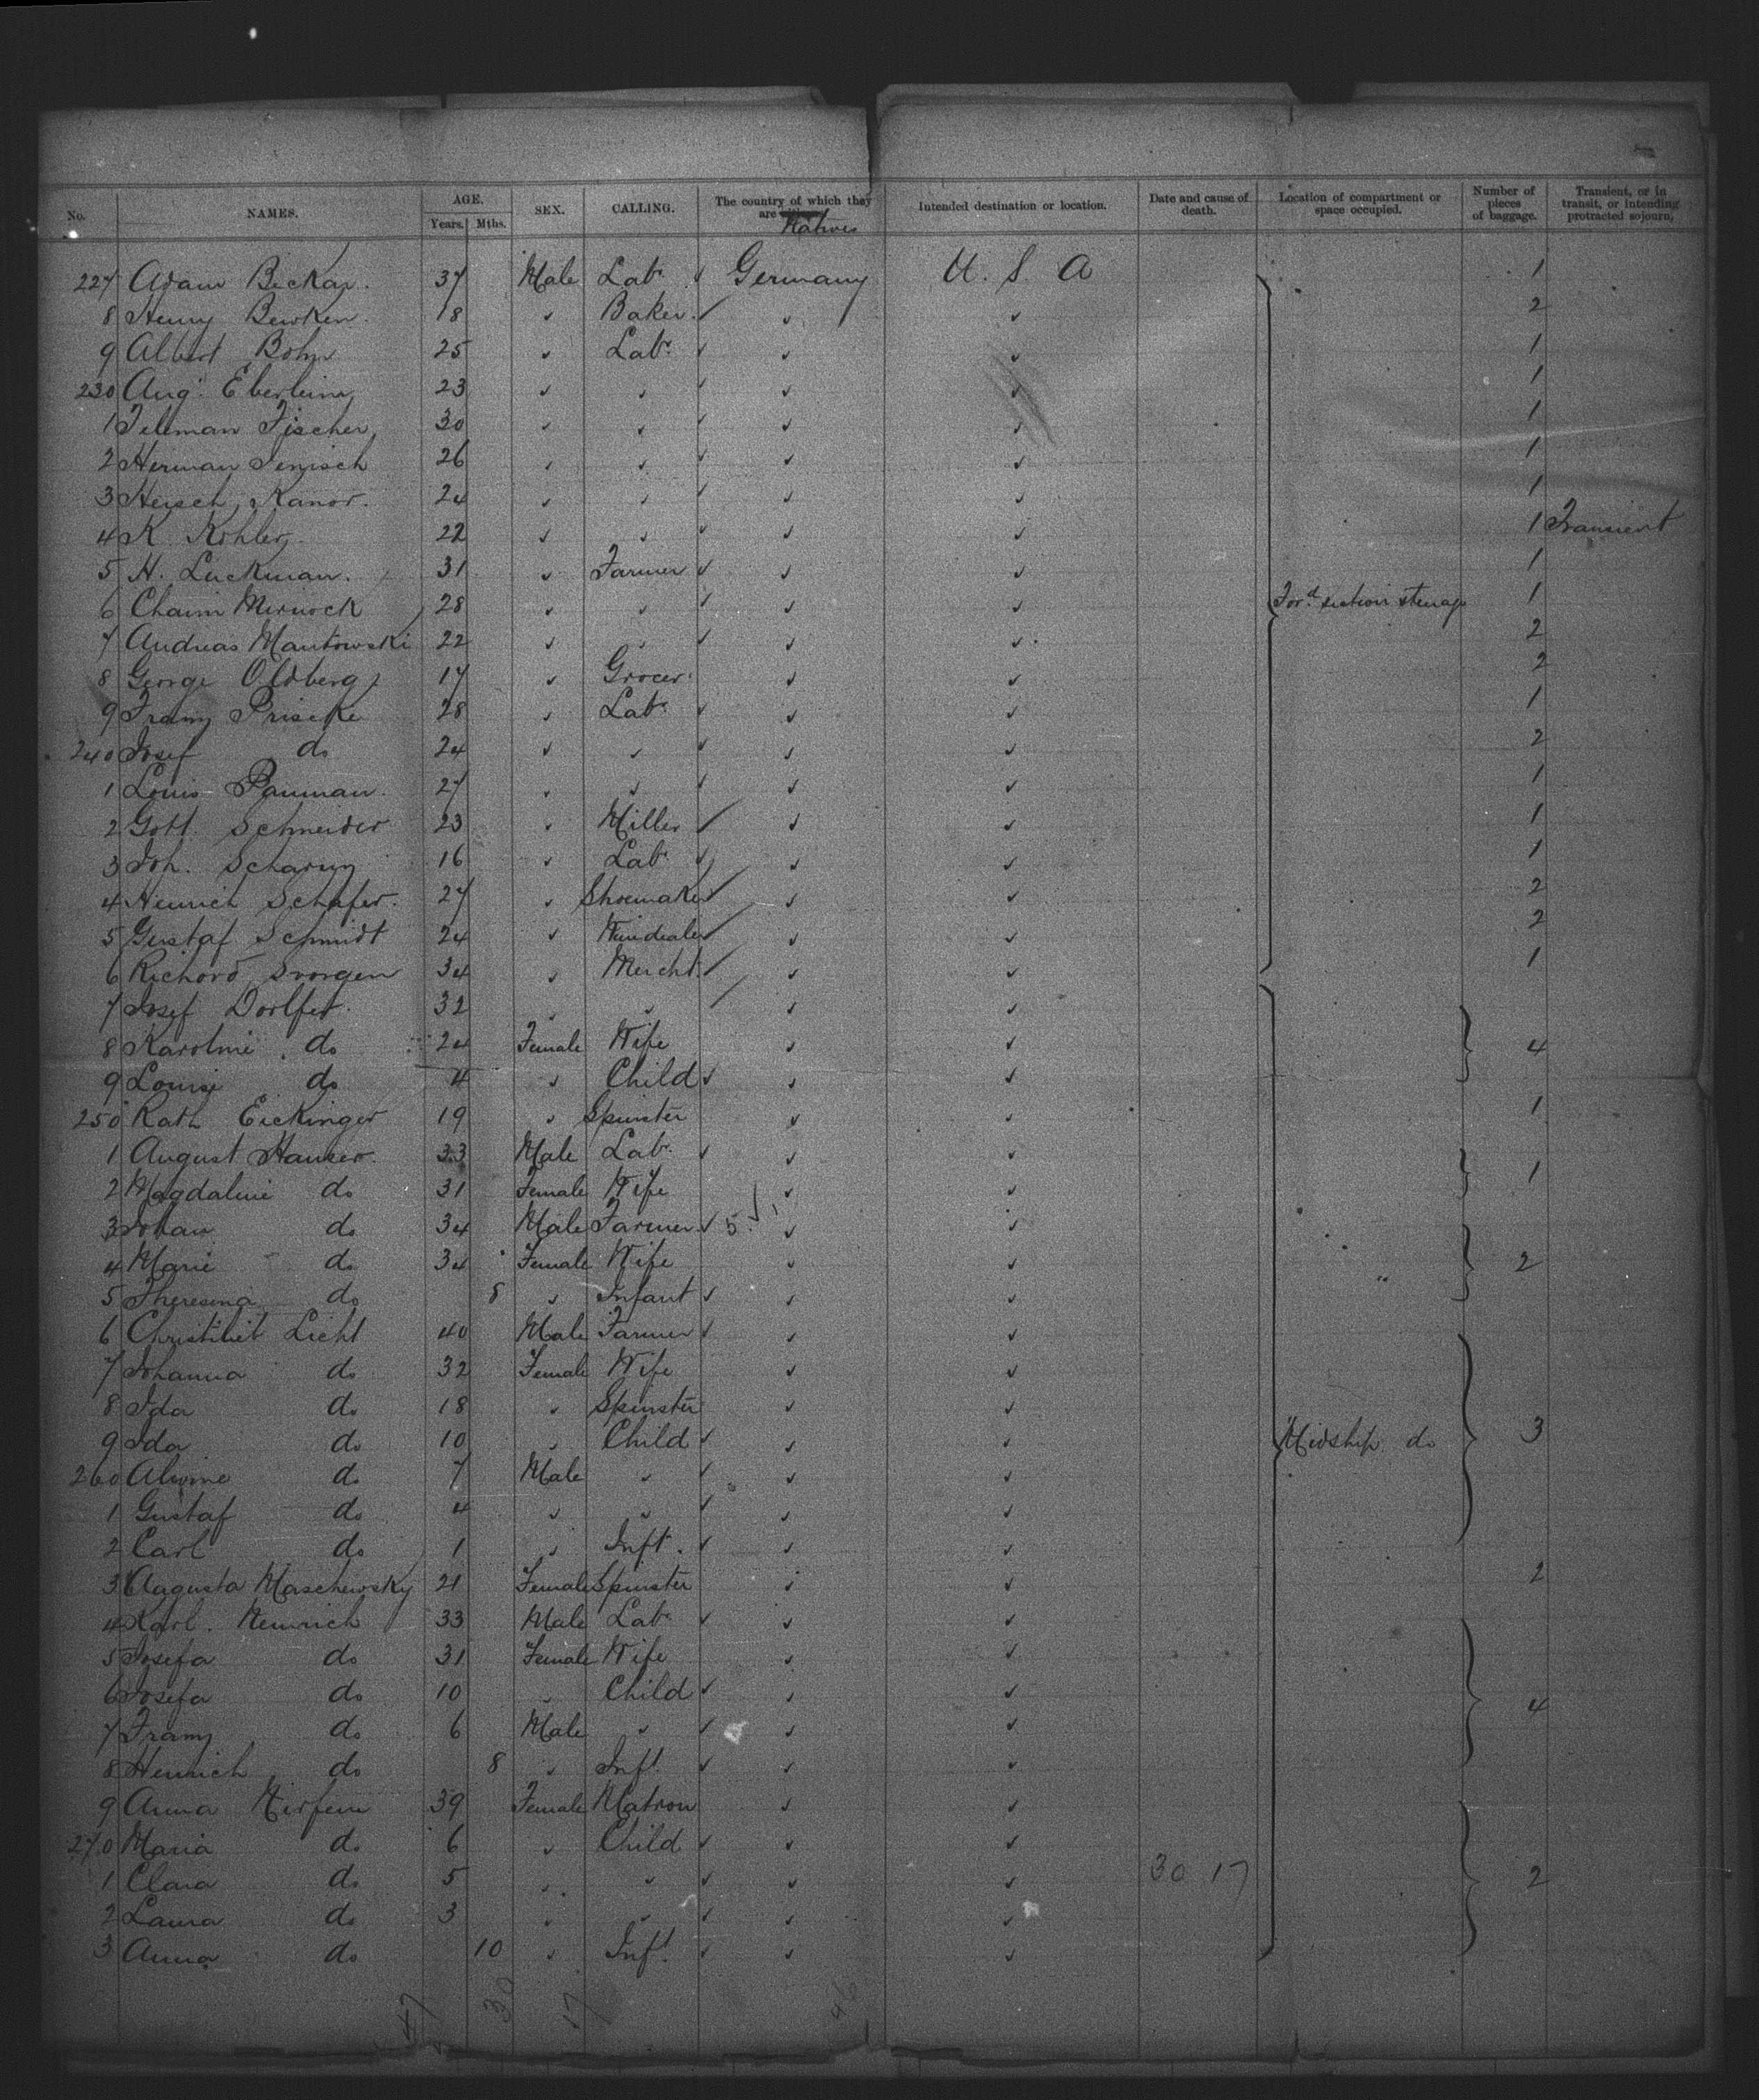 No. NAMES. AGE. Years. Mths. SEX. CALLING. The country of which they are Natives Intended destination or location. Date and cause of death. Location of compartment or space occupied. Number of pieces of baggage. Transient, or in transit, or intending protracted sojourn.
227 Adam Beckar. 37 Male Labr. Germany U. S. A 1
8 Henry Bewken 18 " Baker " " 2
9 Albert Bohn 25 " Labr. " " 1
230 Aug. Eberleim 23 " " " " 1
1 Teleman Fischer 30 " " " " 1
2 Herman Jenisch 26 " " " " 1
3 Hersch Kanor. 24 " " " " 1
4 K. Kohler 22 " " " " 1 Transient
5 H. Luckman. 31 " Farmer " " 1
6 Chaim Mirnock 28 " " " " Ford section steerage 1
7 Andreas Mantowski 22 " " " " 2
8 George Oldberg 17 " Grocer " " 2
9 Franz Priscke 28 " Labr. " " 1
240 Josef do 24 " " " " 2
1 Louis Pauman. 27 " " " " 1
2 Gott. Schneider 23 " Miller " " 1
3 Joh. Scharny 16 " Labr. " " 1
4 Heinrich Schafer. 27 " Shoemaker " " 2
5 Gustaf Schmidt 24 " " " 2
6 Richard 34 " Mercht. " " 1
7 Josef Dorlfer. 32 " " " "
8 Karoline do 24 Female Wife " " 4
9 Louise do 4 " Child " "
250 Kath Eickinger 19 " Spinster " " 1
1 August Hauser. 33 Male Labr. " "
2 Magdaline do 31 Female Wife " " 1
3 Johan do 34 Male Farmer 5 " "
4 Marie do 34 Female Wife " " 2
5 Theresina do 8 " Infant " " "
6 Licht 40 Male Farmer " "
7 Johanna do 32 Female Wife " "
8 Ida do 18 " Spinster " "
9 Ida do 10 " Child " " Midship. do 3
260 Alwine do 7 Male " " "
1 Gustaf do 4 " " " "
2 Carl do 1 " Inft. " "
3 Augusta Maschewsky 21 Female Spinster " " 2
4 Karl. Heinrich 33 Male Labr. " "
5 Josefa do 31 Female Wife " "
6 Josefa do 10 " Child " "
7 Franz do 6 Male " " " 4
8 Heinrich do 8 " Inft. " "
9 Anna 39 Female Matron " "
270 Maria do 6 " Child " "
1 Clara do 5 " " " " 30 17 2
2 Laura do 3 " " " "
3 Anna do 10 " Inft. " "
47 30 17 46